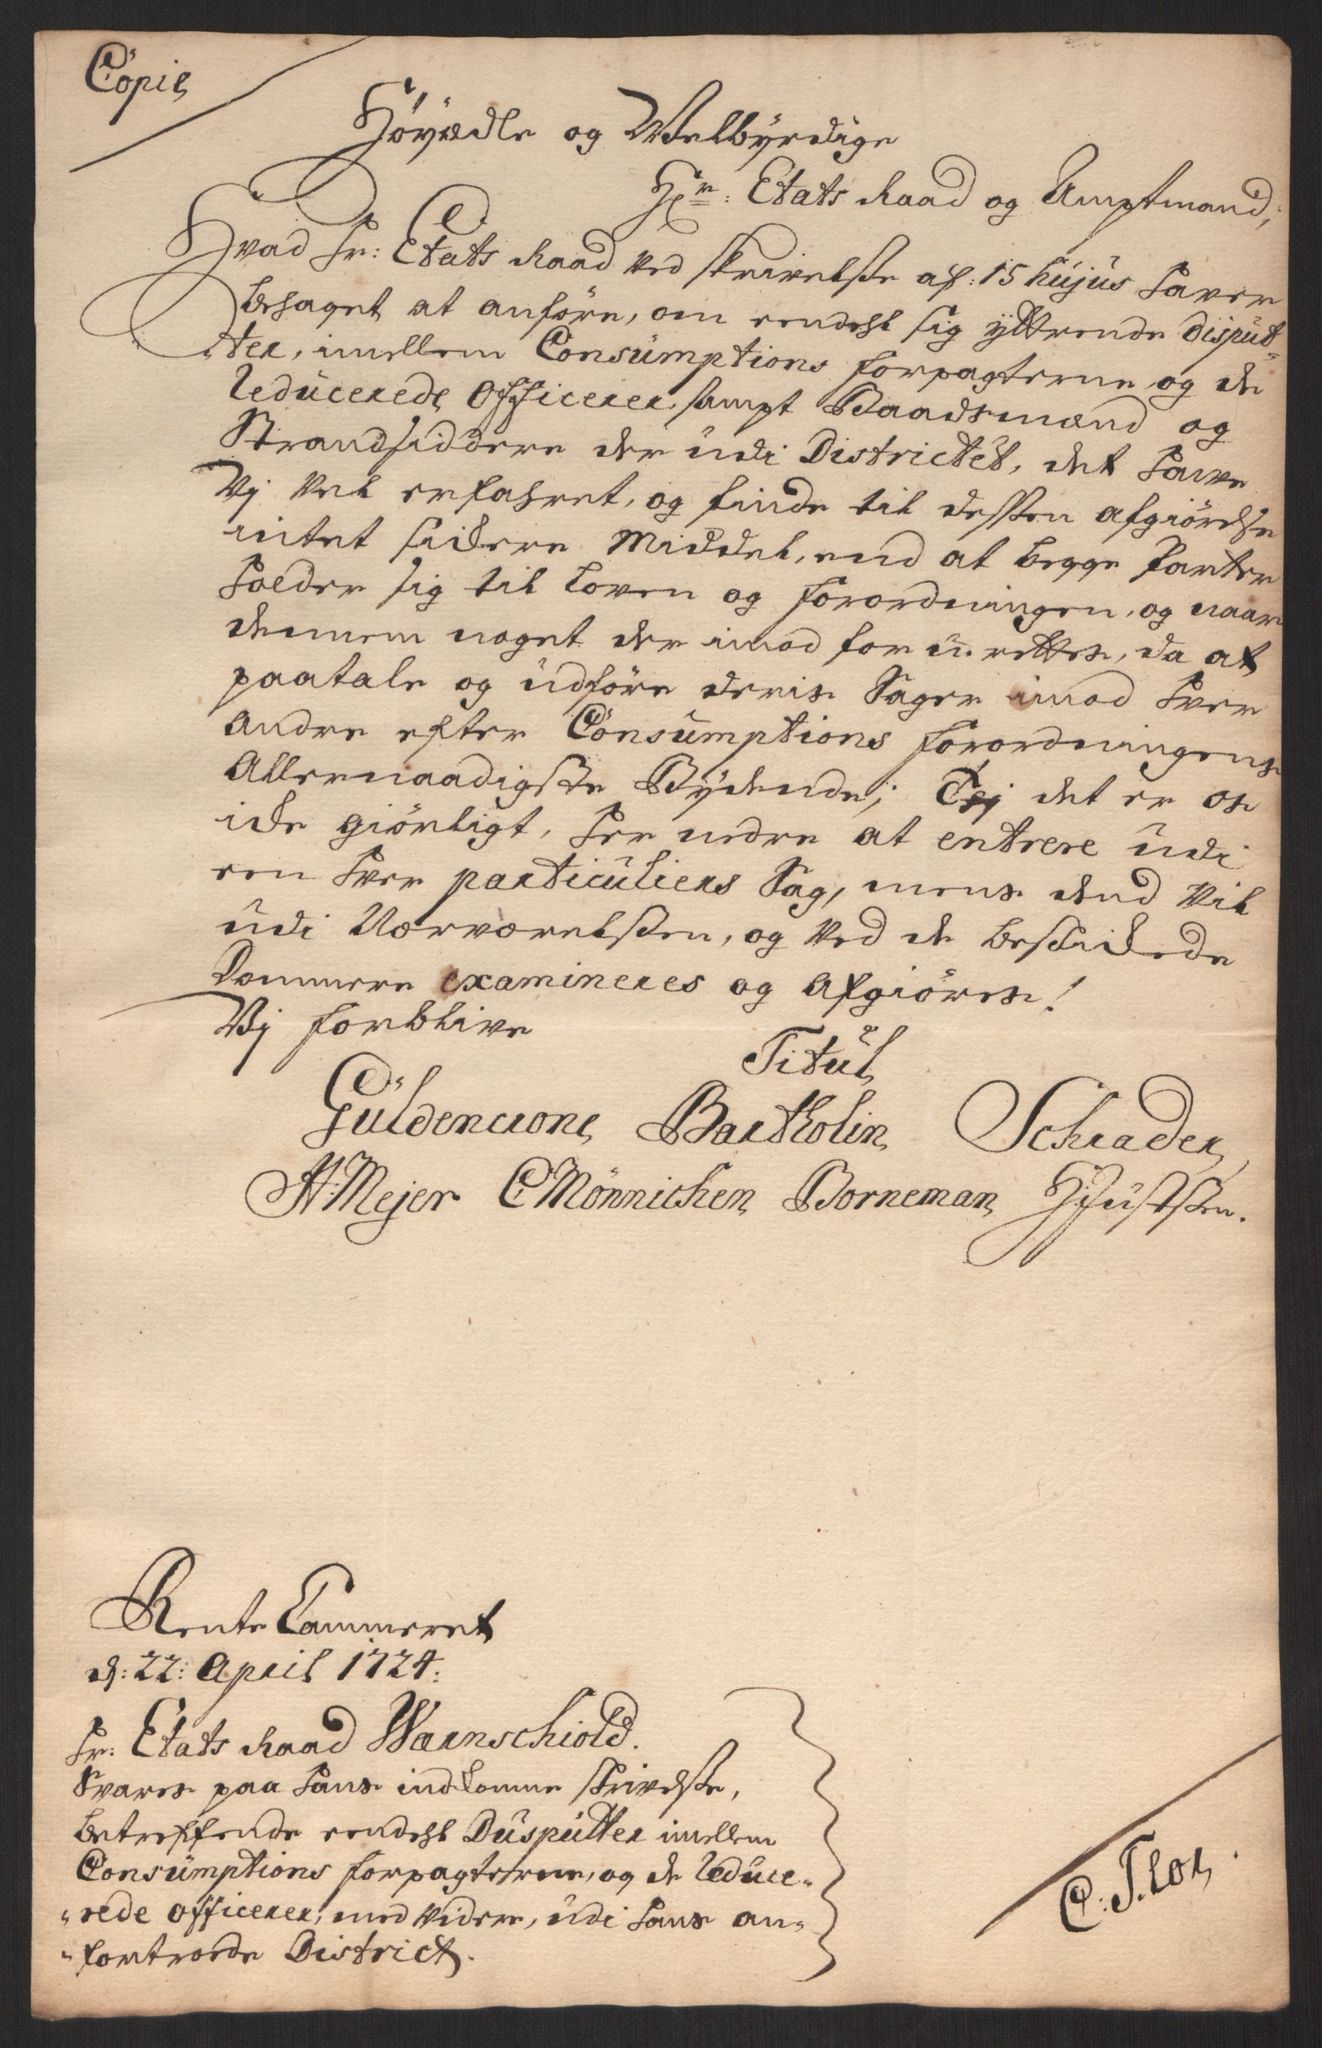 Copie
Høyædle og Welbyrdige
Hr: Etats Raad og Amptmand,
Hvad Hr: Etats Raad ved skrivelse af: 15 hujus haver
behaget at anføre, om eendehl sig yttrende disput-
ter, imellem Consumptions forpagterne og de
reducerede Officerer, sampt Baadsmænd og
Strandsiddere der udi Districtet, det have
Vj vel erfahret, og finde til dessen afgiørelse
intet sickere Middel, end at begge Parter
holder sig til Loven og forordningen, og naar
dennem noget der imod for u-rettes, da at
paatale og udføre deris Sager imod hver
andre efter Consumptions forordningens
Allernaadigste Bydende; Thj det er os
icke giørligt, her nedre at entrere udi
een hver particuliers Sag, mens dend vil
udi Nærværelsen, og ved de beskickede
Dommere examineres og afgiøres!
Vj forblive
Titul
Güldencrone Bartholin Schrader
A: Mejer C Mönnichen Borneman H Justsen.
Rente Cammeret
d: 22: April 1724:
Hr: Etats Raad Warnschiold.
Svares paa hans indkomne skrivelse,
betreffende eendehl Dusputter imellem
Consumptions forpagterne, og de reduce-
-rede officerer, med videre, udi hans an-
-fortroede District.
C: Flor.